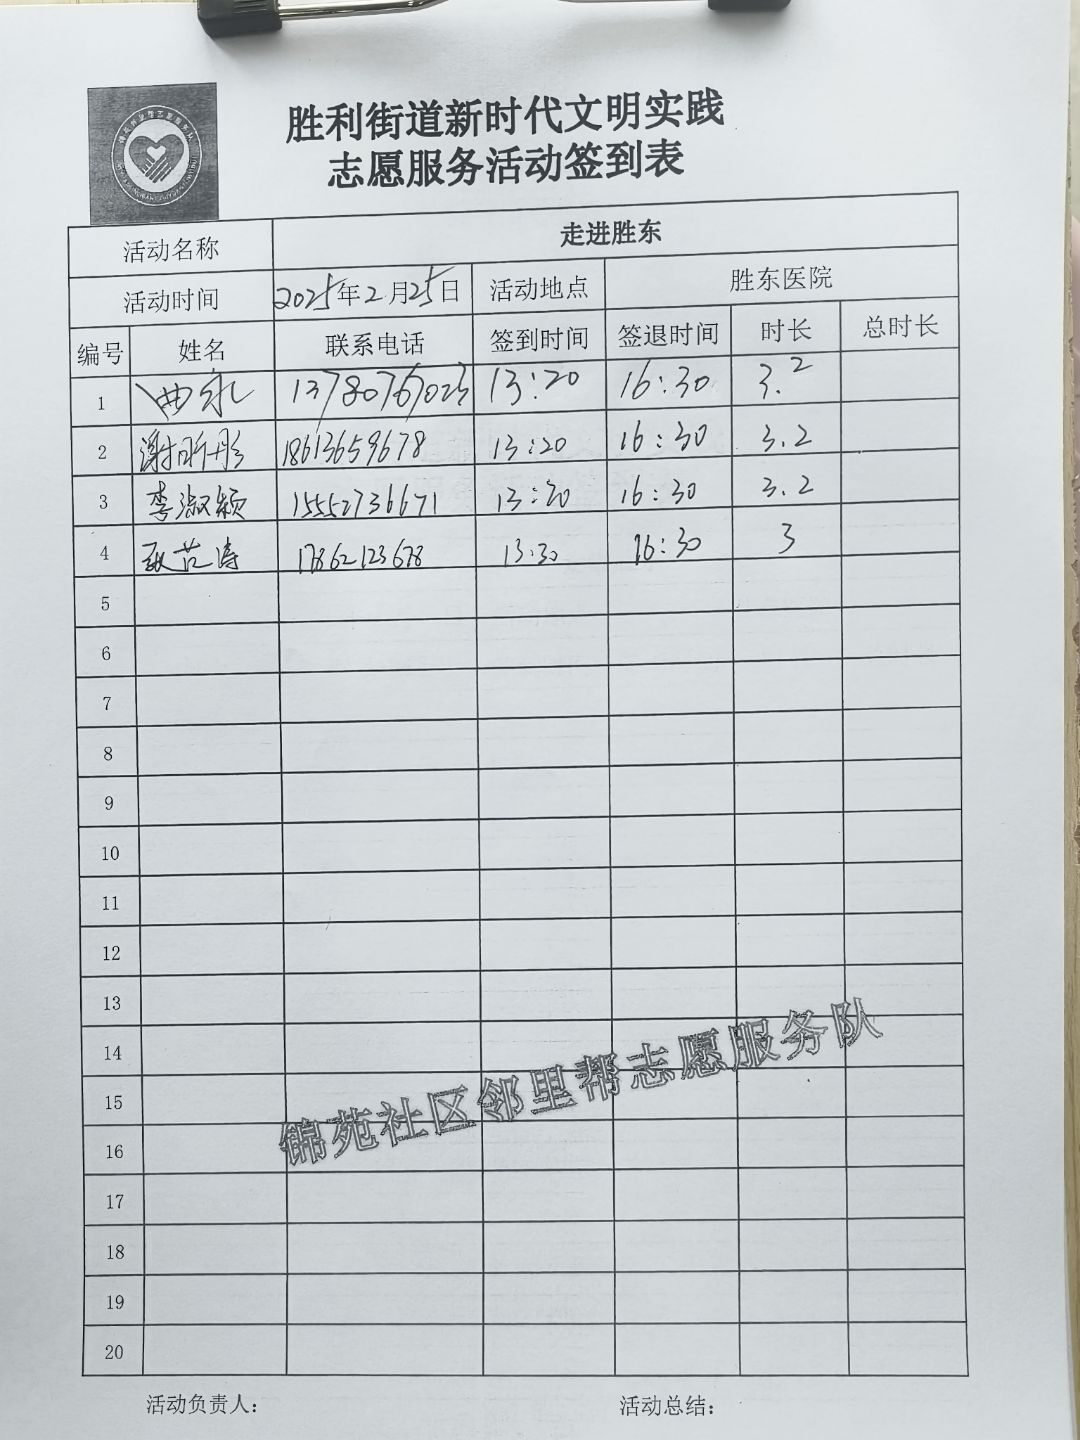 胜利街道新时代文明实践
志愿服务活动签到表
活动名称 走进胜东
活动时间 2025年2月25日 活动地点 胜东医院
编号 姓名 联系电话 签到时间 签退时间 时长 总时长
1 曲永 13780767023 13:20 16:30 3.2
2 谢昕彤 18613659678 13:20 16:30 3.2
3 李淑颖 15552736671 13:20 16:30 3.2
4 涛 17862123678 13:30 16:30 3
5
6
7
8
9
10
11
12
13
14
15
16
17
18
19
20
锦苑社区邻里帮志愿服务队
活动负责人: 活动总结: